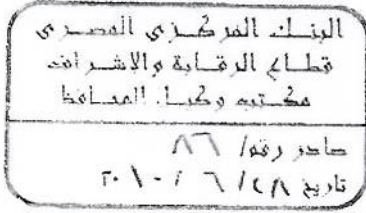 البنك المركزى المصرى
قطاع الرقابة والإشراف
مكتب وكيل المحافظ
صادر رقم/ ٨٦
تاريخ ٢٨/ ٦ / ٢٠١٠